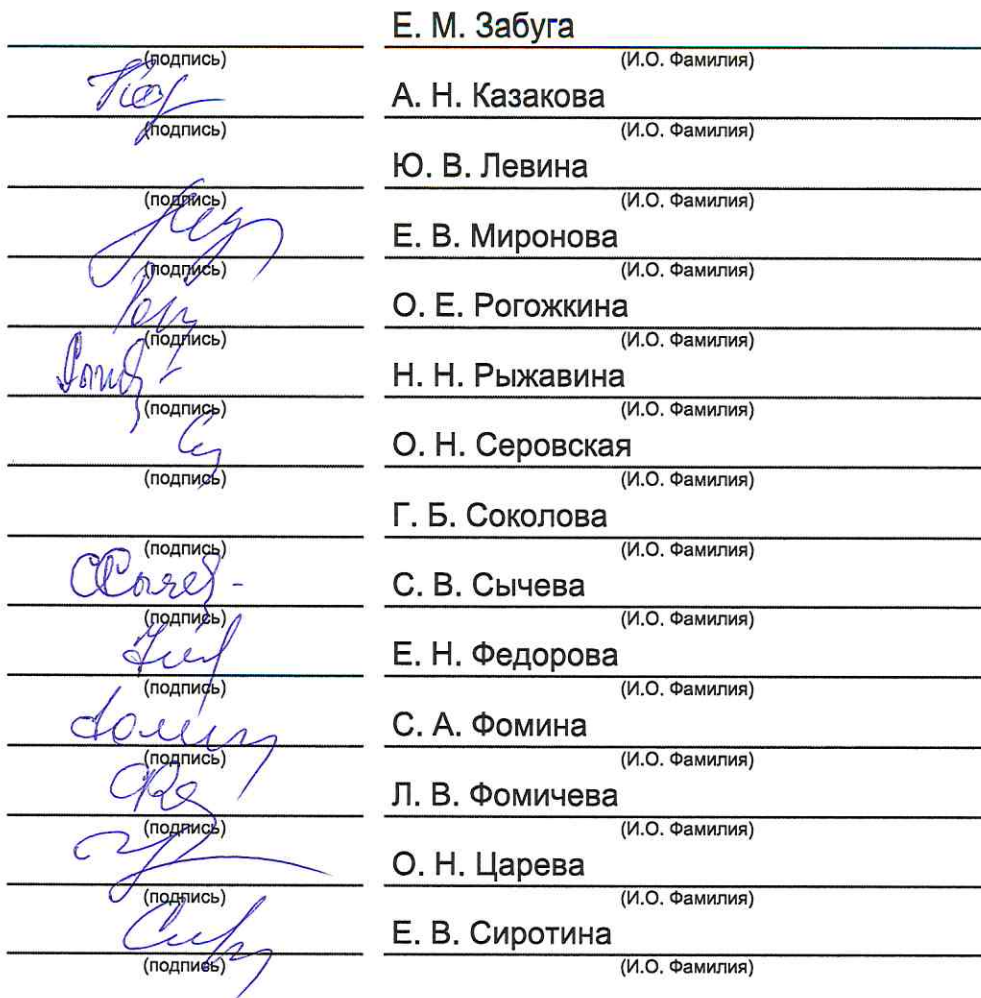 Е. М. Забуга
(подпись) (И.О. Фамилия)
А. Н. Казакова
(подпись) (И.О. Фамилия)
Ю. В. Левина
(подпись) (И.О. Фамилия)
Е. В. Миронова
(подпись) (И.О. Фамилия)
О. Е. Рогожкина
(подпись) (И.О. Фамилия)
Н. Н. Рыжавина
(подпись) (И.О. Фамилия)
О. Н. Серовская
(подпись) (И.О. Фамилия)
Г. Б. Соколова
(подпись) (И.О. Фамилия)
С. В. Сычева
(подпись) (И.О. Фамилия)
Е. Н. Федорова
(подпись) (И.О. Фамилия)
С. А. Фомина
(подпись) (И.О. Фамилия)
Л. В. Фомичева
(подпись) (И.О. Фамилия)
О. Н. Царева
(подпись) (И.О. Фамилия)
Е. В. Сиротина
(подпись) (И.О. Фамилия)